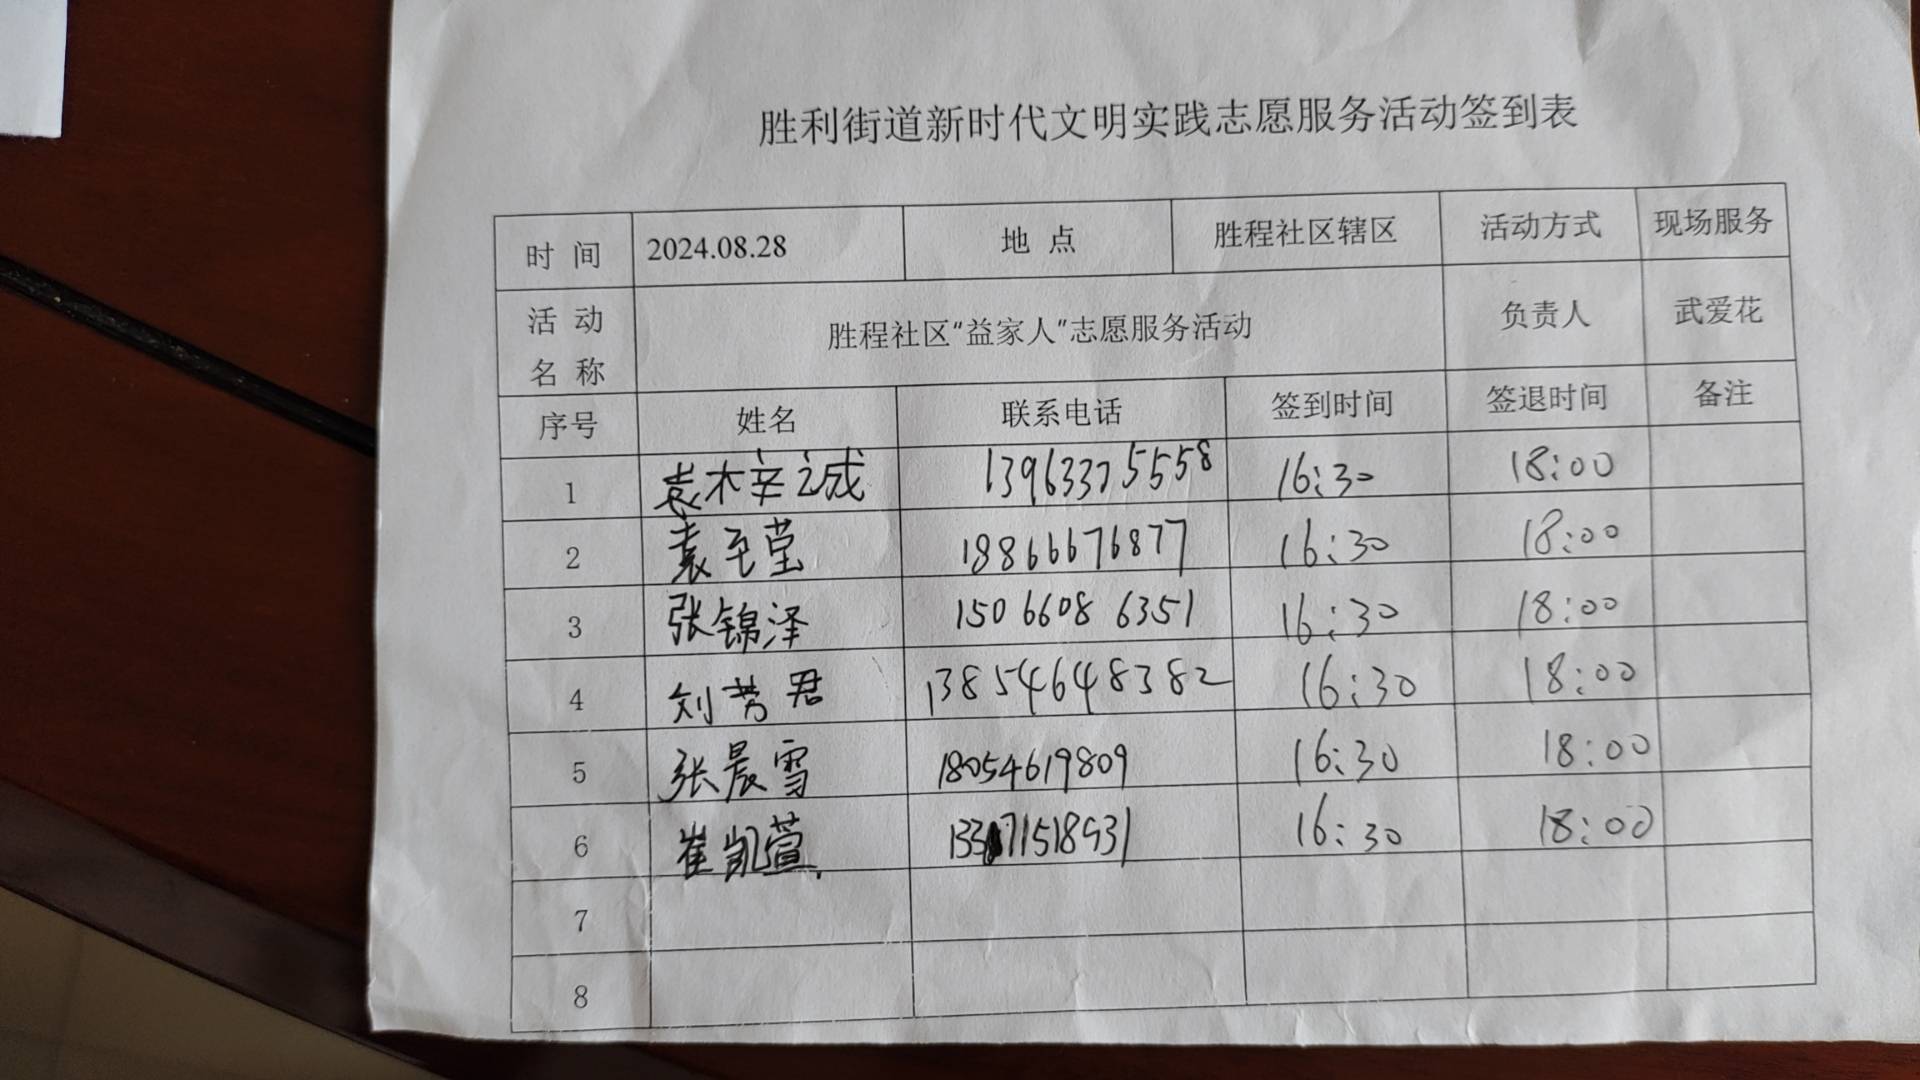 胜利街道新时代文明实践志愿服务活动签到表
时 间 2024.08.28 地 点 胜程社区辖区 活动方式 现场服务
活 动 名 称 胜程社区“益家人”志愿服务活动 负责人 武爱花
序号 姓名 联系电话 签到时间 签退时间 备注
1 袁梓诚 13963375558 16:30 18:00
2 袁至莹 18866676877 16:30 18:00
3 张锦泽 150 6608 6351 16:30 18:00
4 刘芳君 13854648382 16:30 18:00
5 张晨雪 18054619809 16:30 18:00
6 崔凯萱 16:30 18:00
7
8